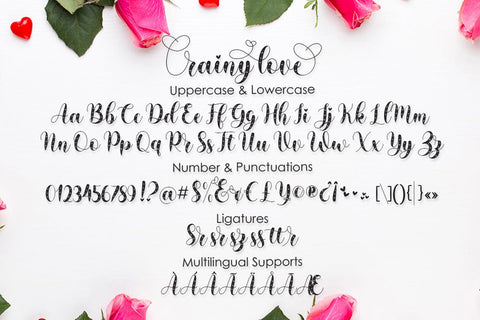 rainy love
Uppercase & Lowercase
Aa Bb Cc Dd Ee Ff Gg Hh Ii Jj Kk Ll Mm
Nn Oo Pp Qq Rr Ss Tt Uu Vv Ww Xx Yy Zz
Number & Punctuations
0123456789!?@#$%&
[\](){|}«»
Ligatures
Multilingual Supports
ÀÁÂÃÄÅÆ